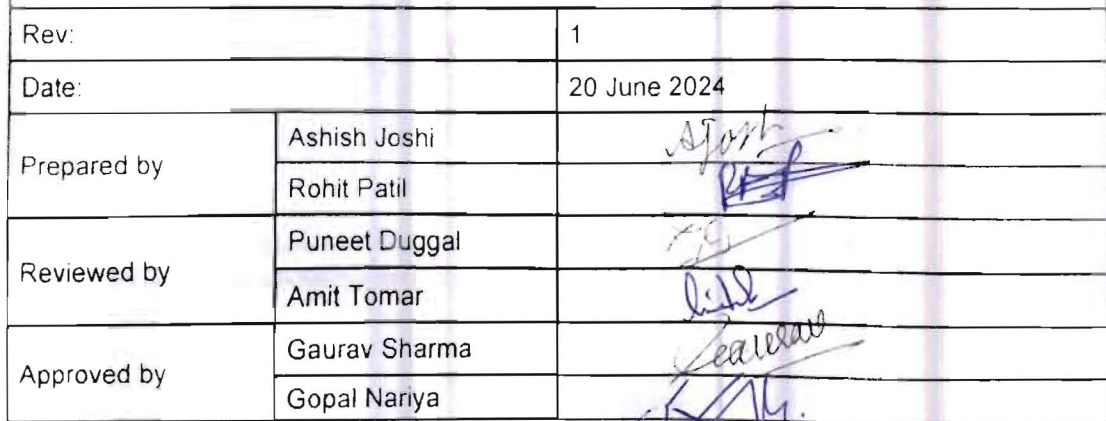 Rev: 1
Date: 20 June 2024
Prepared by
Ashish Joshi AJoshi
Rohit Patil
Reviewed by
Puneet Duggal
Amit Tomar
Approved by
Gaurav Sharma Gaurav
Gopal Nariya